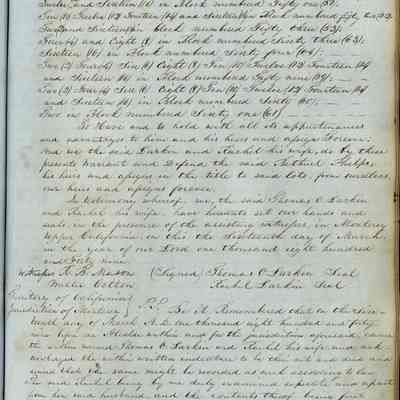 Twelve and Sixteen (16) in Block numbered Fifty one (51).
Ten (10) Twelve (12) Fourteen (14) and Sixteen (16) in Block numbered fifty two (52).
and Sixteen in block numbered Fifty three (53).
Four (4) and Eight (8) in Block numbered Sixty three (63).
Sixteen (16) in Block numbered Sixty four (64).
Two (2) Four (4) Six (6) Eight (8) Ten (10) Twelve (12) Fourteen (14)
and Sixteen 16 in Block numbered Fifty nine (59). —
Two (2) Four (4) Six (6) Eight (8) Ten (10) Twelve (12) Fourteen (14)
and Sixteen (16) in Block numbered Sixty (60). —
Two in Block numbered Sixty one (61)
To Have and to hold with all its appurtenances
and advantages to him and his heirs and assigns Forever.
And we the said Larkin and Rachel his wife, do by these
presents Warrant and Defend the said Bethuel Phelps,
his heirs and assigns in the title to said lots, from ourselves,
our heirs and assigns forever.
In testimony whereof, we, the said Thomas O. Larkin
and Rachel his wife, have hereunto set our hands and
seals, in the presence of the assisting witnesses, in Monterey
Upper California on this the Sixteenth day of March,
in the year of our Lord one thousand eight hundred
and forty nine.
Witnesses (Signed) Thomas O. Larkin Seal
Walter Colton Rachel Larkin Seal
Territory of California
Jurisdiction of Monterey Be it Remembered that on the
day of March A.D. one thousand eight hundred and forty
nine before me Alcalde within and for the jurisdiction aforesaid, came
the within named Thomas O Larkin and Rachel his wife and ack-
nowledged the within written indenture to be their act and deed and
that the same might be recorded as such according to law
the said Rachel being by me duly examined separate and apart
from her said husband and the contents being first